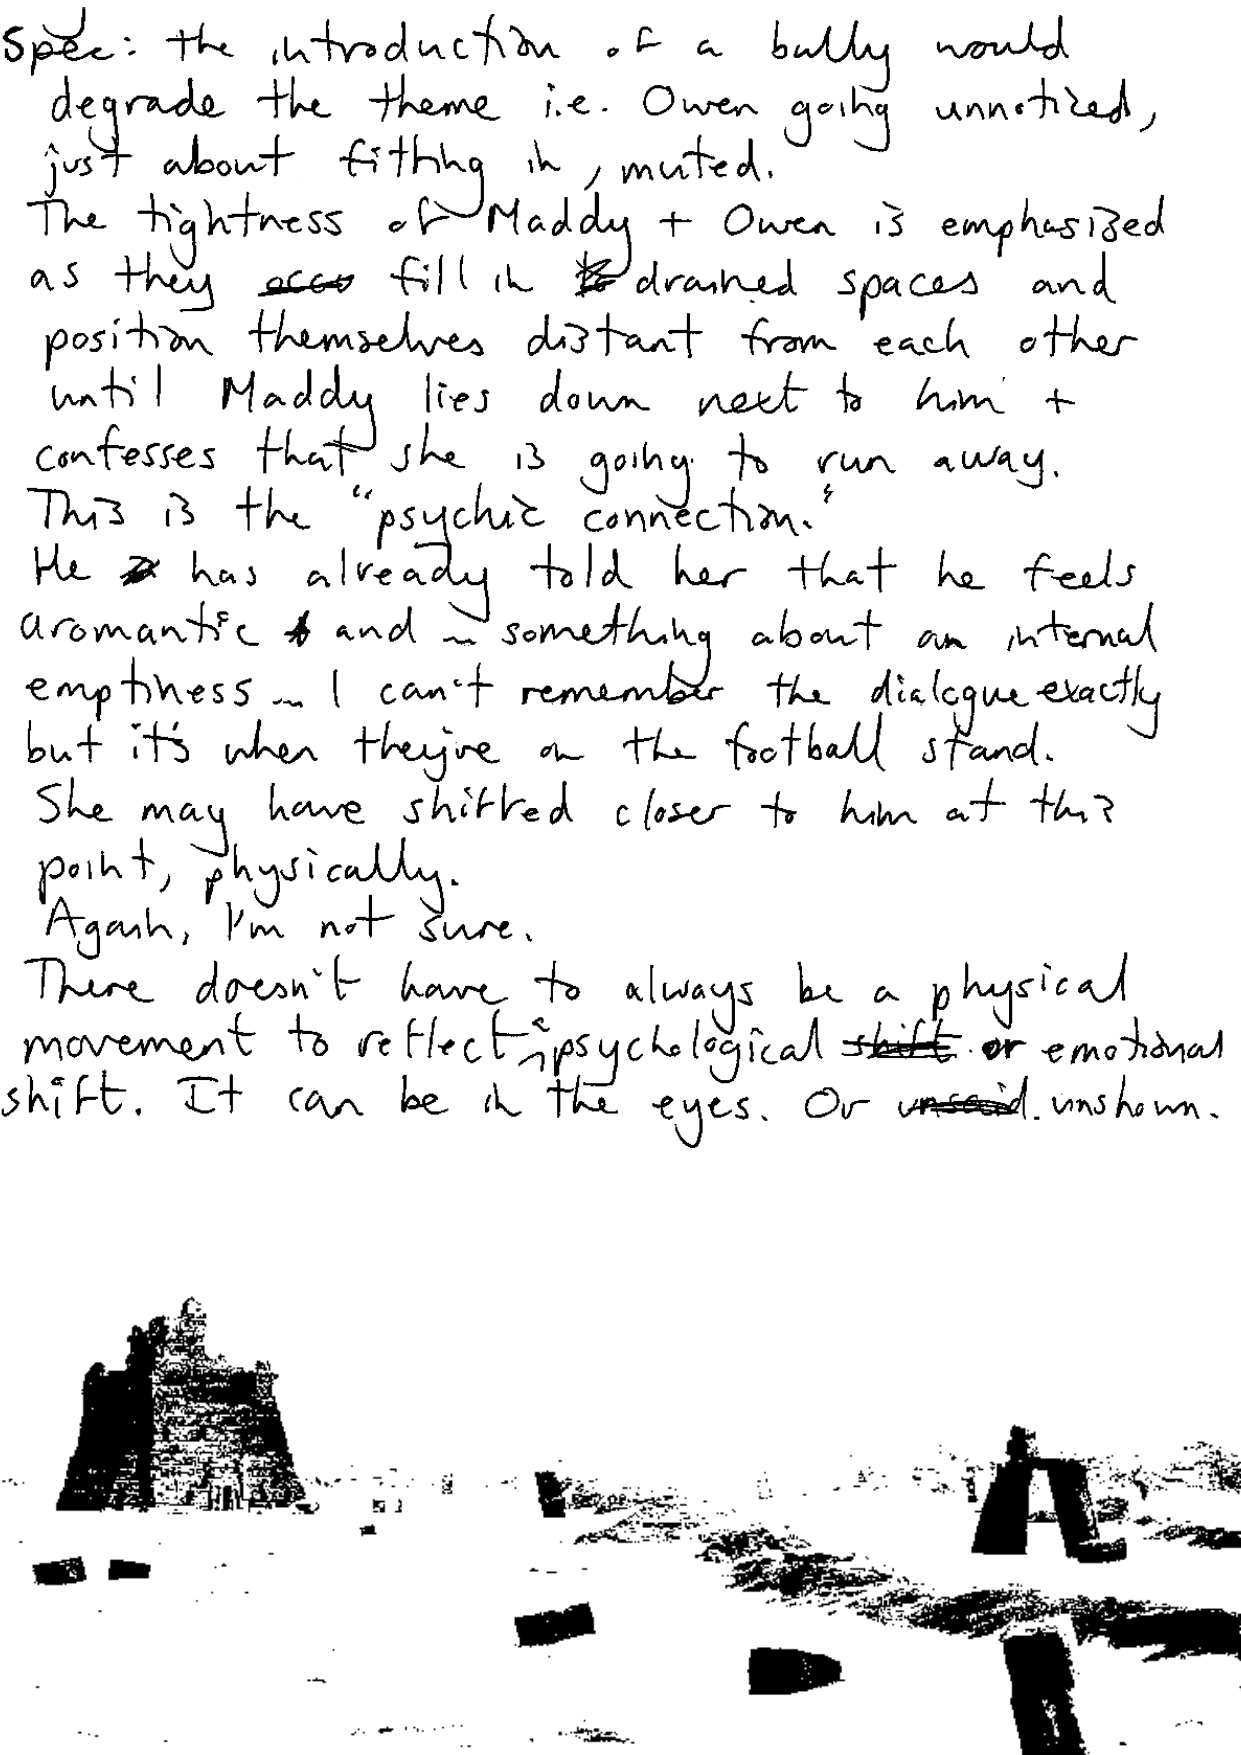 Spec: the introduction of a bully would
degrade the theme i.e. Owen going unnoticed,
just about fitting in, muted.
The tightness of Maddy + Owen is emphasized
as they fill in drained spaces and
position themselves distant from each other
until Maddy lies down next to him +
confesses that she is going to run away.
This is the "psychic connection."
He has already told her that he feels
aromantic and ~ something about an internal
emptiness ~ I can't remember the dialogue exactly
but it's when they're on the football stand.
She may have shifted closer to him at this
point, physically.
Again, I'm not sure.
There doesn't have to always be a physical
movement to reflect a psychological shift or emotional
shift. It can be in the eyes. Or unsaid. unshown.